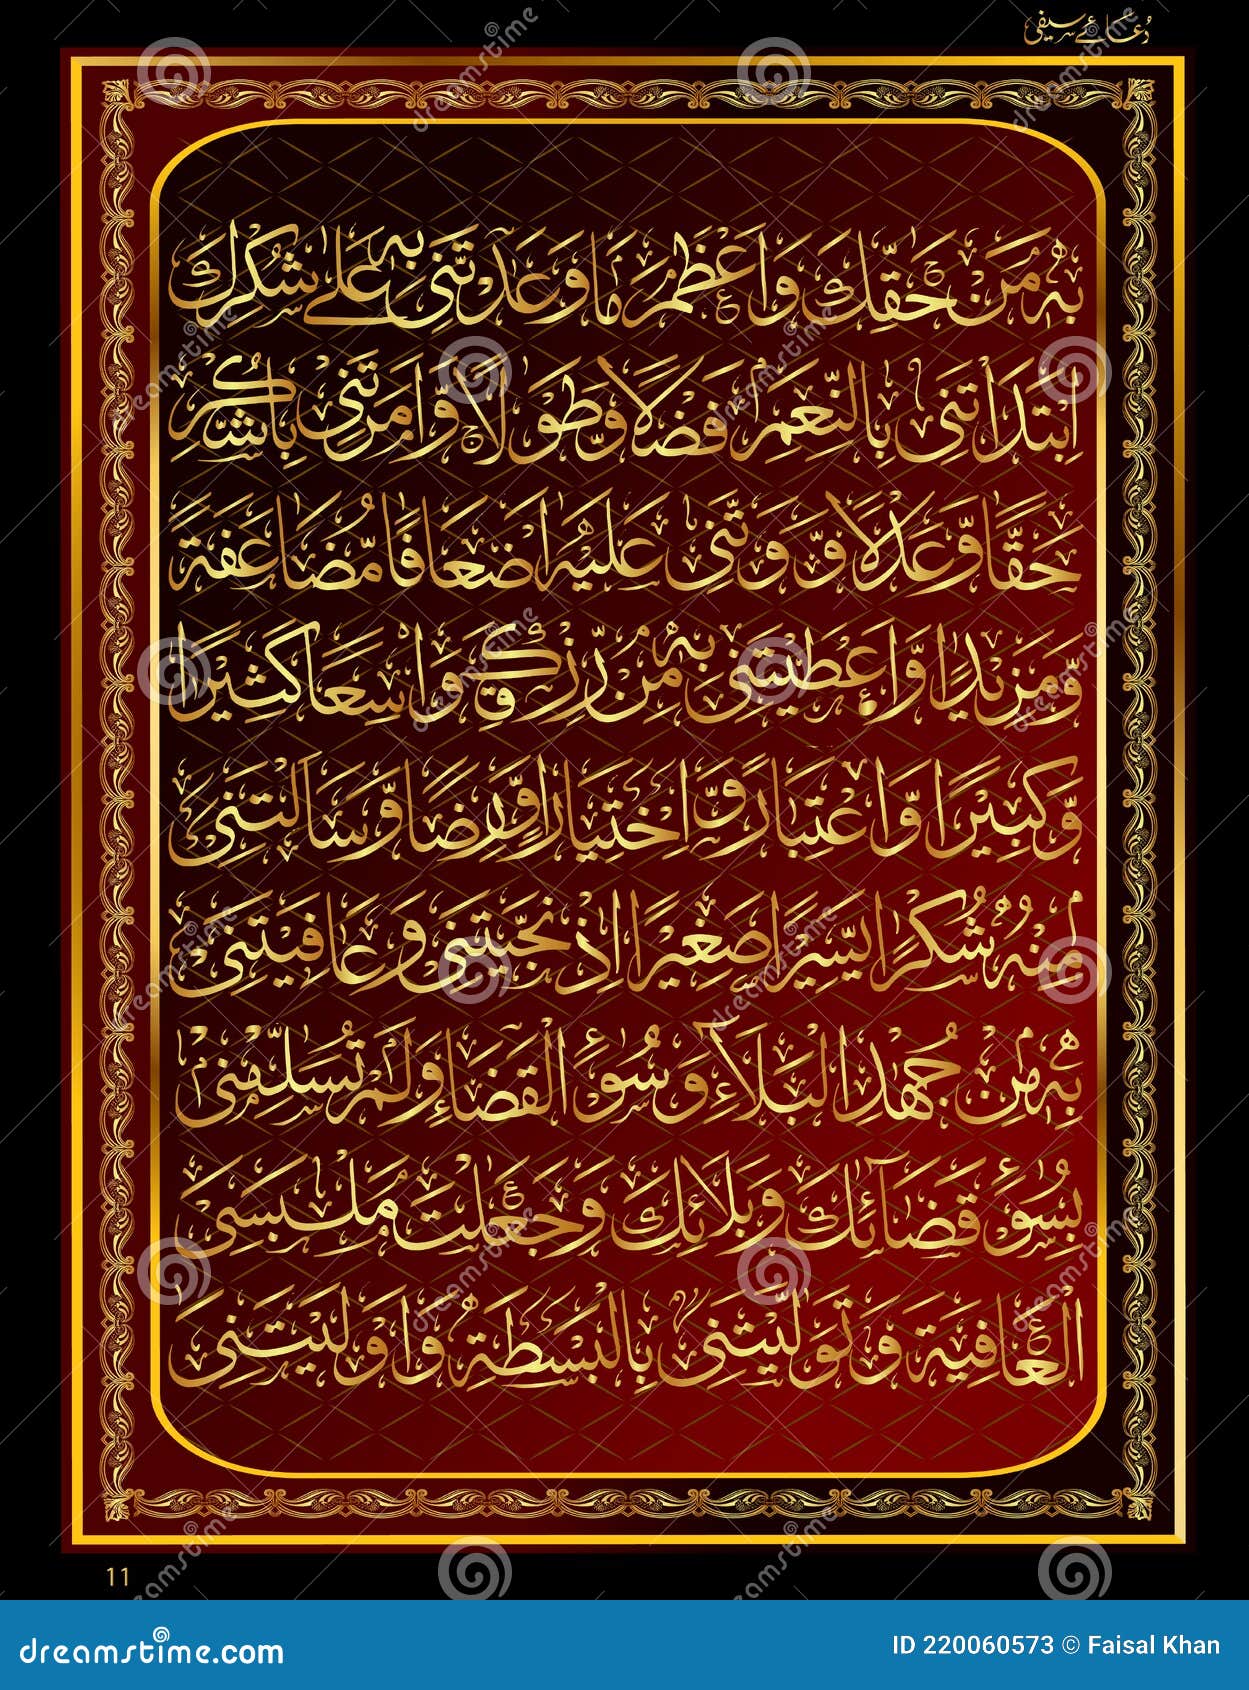 دُعائے سیفی
بِهٖ مِنْ حَقِّكَ وَاَعْظَمَ مَا وَعَدْتَّنِیْ بِهٖ عَلٰی شُكْرِكَ
اِبْتَدَاْتَنِیْ بِالنِّعَمِ فَضْلًا وَّطَوْلًا وَّاَمَرْتَنِیْ بِالشُّكْرِ
حَقًّا وَّعَدْلًا وَّ وَعَدْتَّنِیْ عَلَیْهِ اَضْعَافًا مُّضَاعَفَةً
وَّمَزِیْدًا وَّاَعْطَیْتَنِیْ بِهٖ مِنْ رِّزْقِكَ وَاسِعًا كَثِیْرًا
وَّكَبِیْرًا وَّاعْتِبَارًا وَّاخْتِیَارًا وَّرِضًا وَّسَاَلْتَنِیْ
مِنْهُ شُكْرًا یَّسِیْرًا صَغِیْرًا اِذْ نَجَّیْتَنِیْ وَعَافَیْتَنِیْ
بِهٖ مِنْ جُهْدِ الْبَلَآءِ وَسُوْٓءِ الْقَضَآءِ وَلَمْ تُسَلِّمْنِیْ
بِسُوْٓءِ قَضَآئِكَ وَبَلَائِكَ وَجَعَلْتَ مَلْبَسِیَ
الْعَافِیَةَ وَتَوَلَّیْتَنِیْ بِالْبَسْطَةِ وَاَوْلَیْتَنِیْ
11
dreamstime.com
ID 220060573 © Faisal Khan